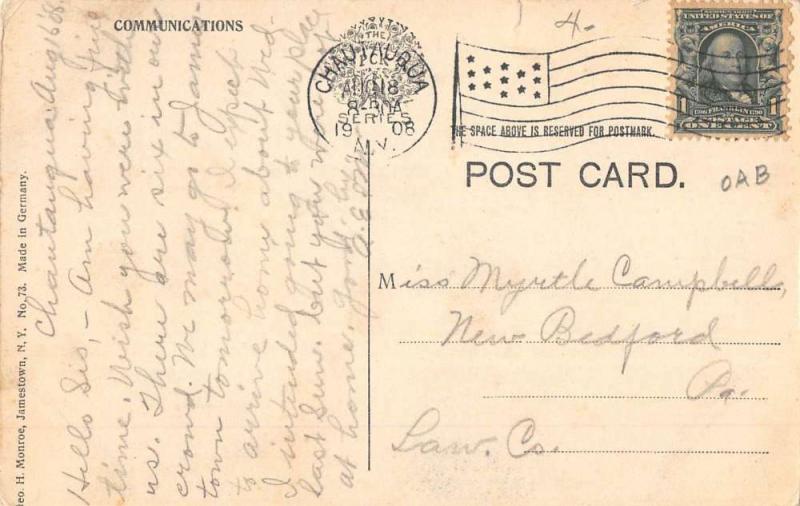 COMMUNICATIONS
THE
CHAUTAUQUA
AUG 18
8-30A
SERIES
1908
N.Y.
1 UNITED STATES OF AMERICA
1706 FRANKLIN 1790
POSTAGE
ONE CENT
4-
THE SPACE ABOVE IS RESERVED FOR POSTMARK.
POST CARD.
OAB
Geo. H. Monroe, Jamestown, N. Y. No. 73. Made in Germany.
Chautauqua Aug
Hello Sis, - Am having fine
time. Wish you were with
us. There are six in our
crowd. We may go to James-
town tomorrow. I expect
to arrive home about Wed.
I intended going to your place
last Sun. but you were not
at home. Good by
Miss Myrtle Campbell,
New Bedford
Pa.
Law. Co.